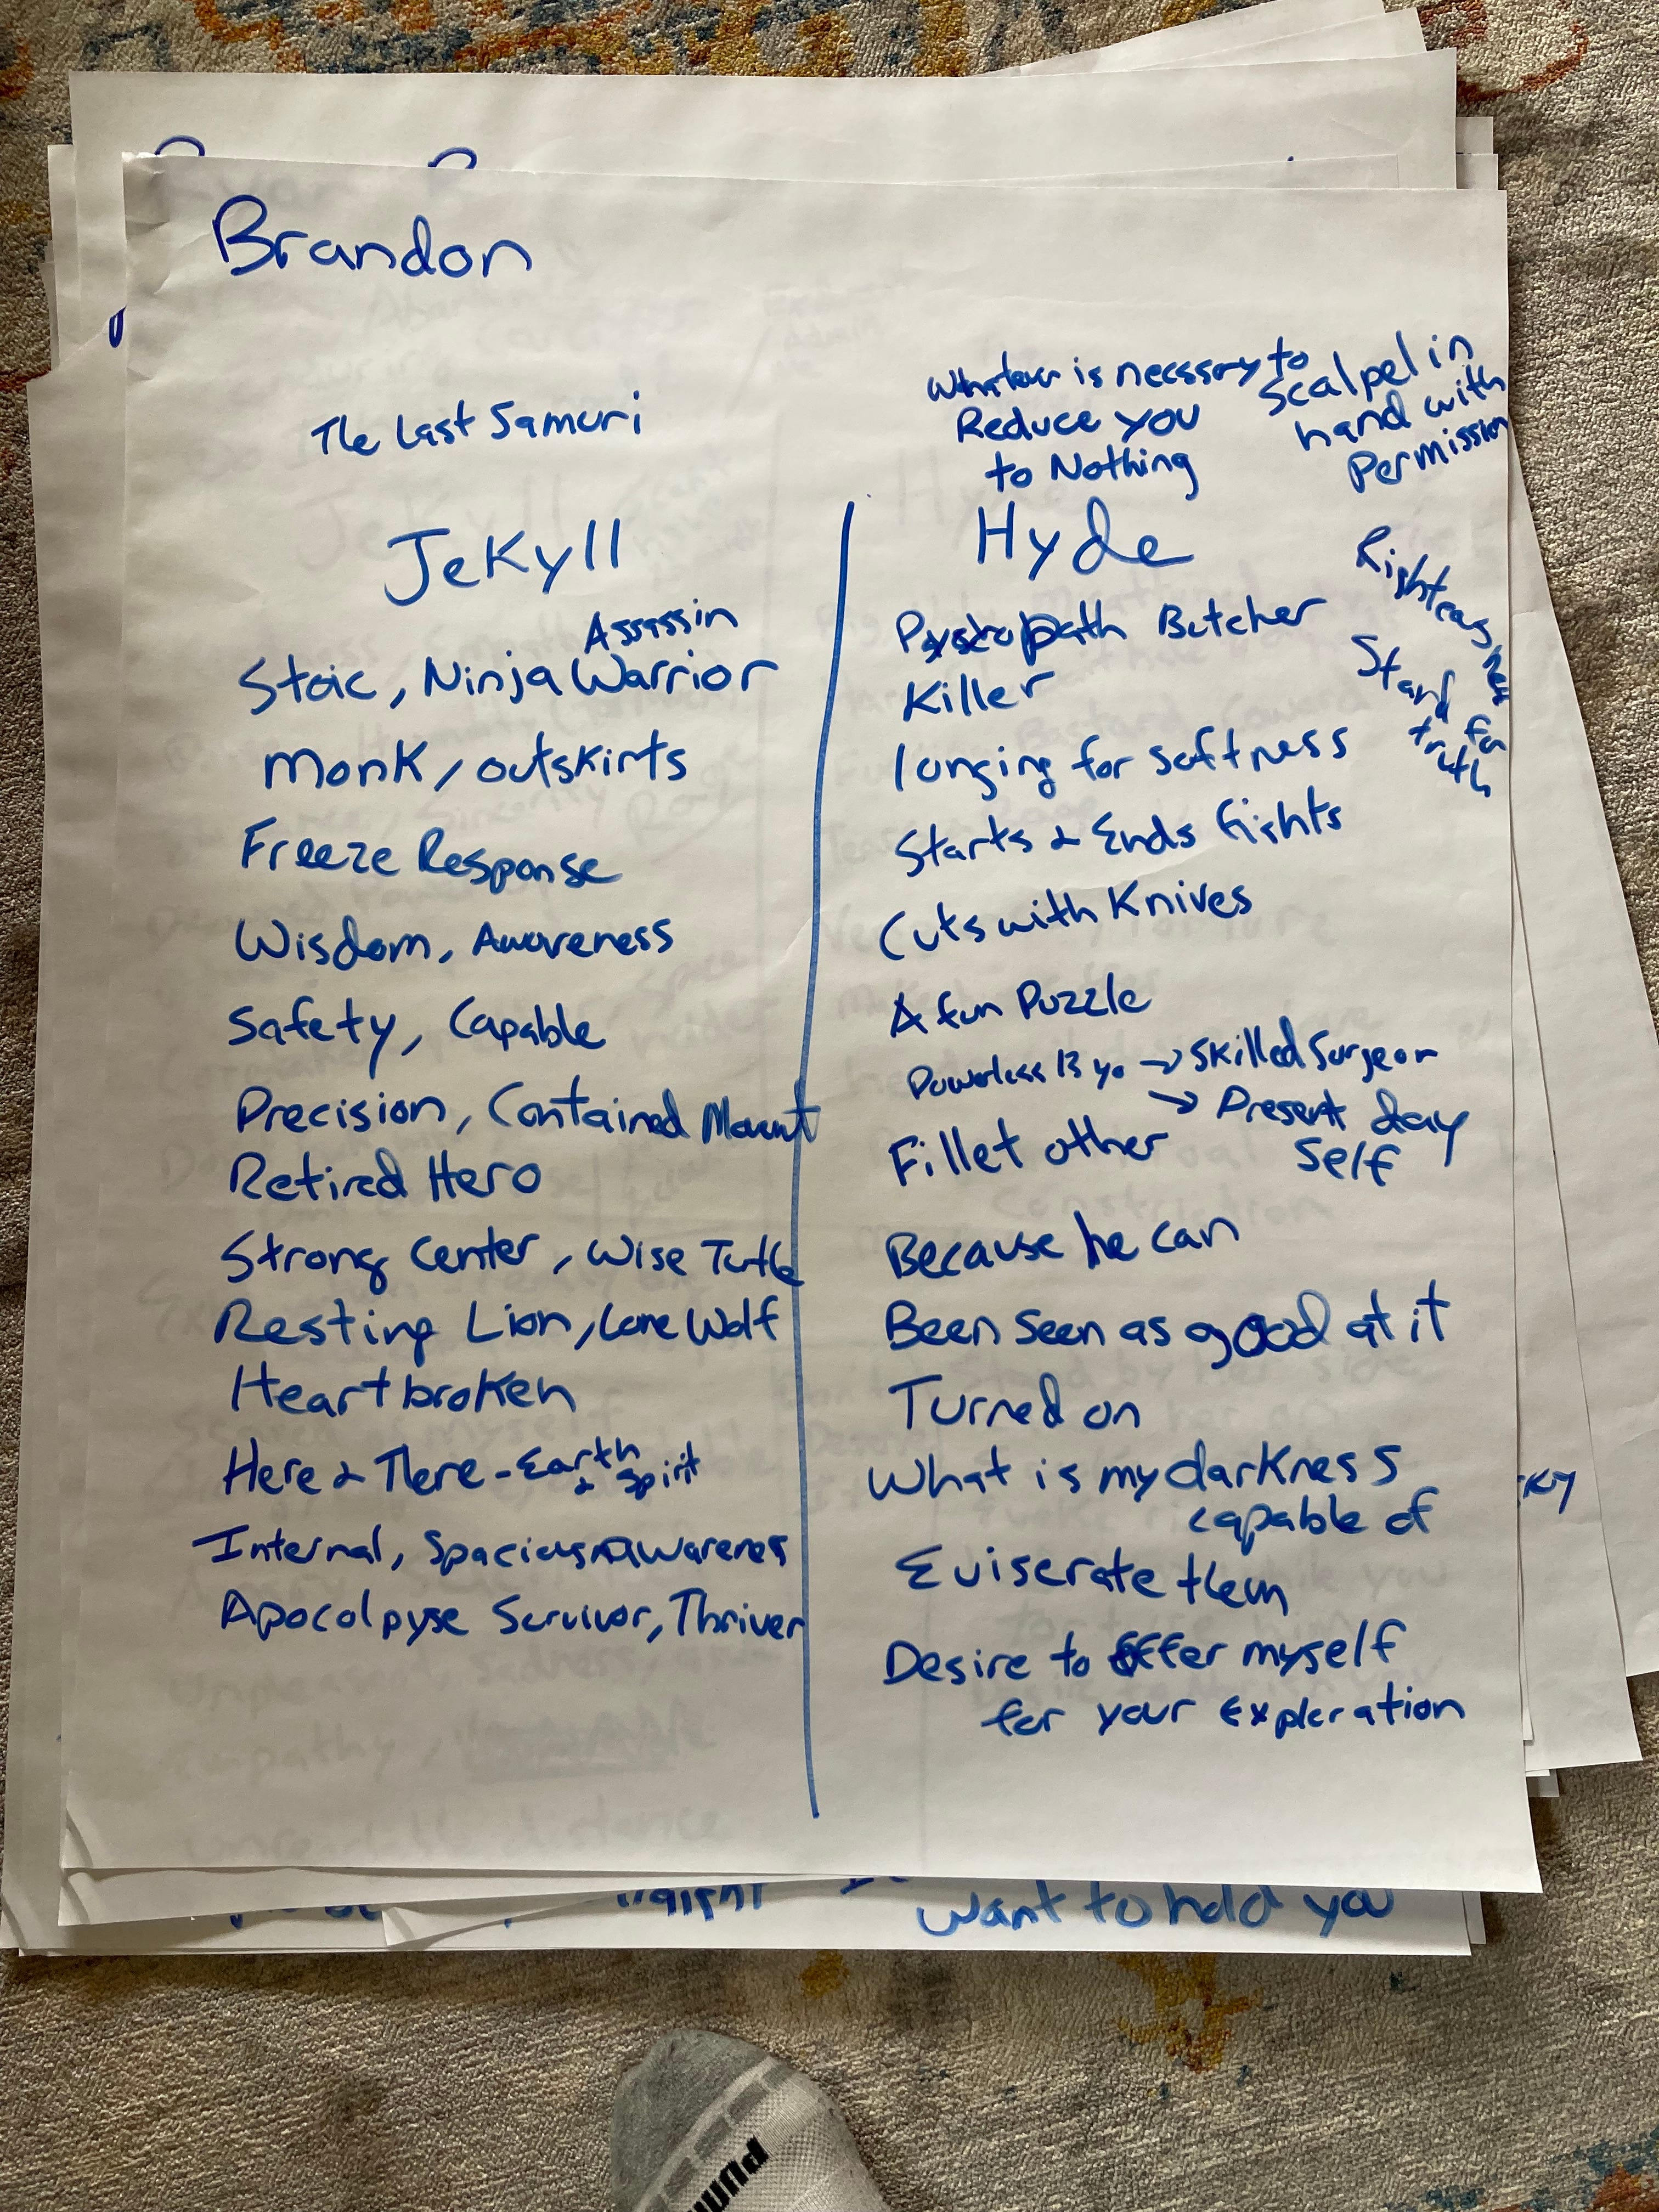 Brandon
The Last Samuri
Whatever is necssary to
Reduce you
to Nothing
Scalpel in
hand with
Permission
Jekyll
Hyde
Righteousness
Stand for
truth
Assassin
Stoic, Ninja Warrior
Monk, outskirts
Freeze Response
Wisdom, Awareness
Safety, Capable
Precision, Contained Mount
Retired Hero
Strong Center, Wise Turtle
Resting Lion, Lone Wolf
Heartbroken
Here & There - Earth
& Spirit
Internal, Spacious Awarenes
Apocolpyse Survivor, Thriver
Psychopath Butcher
Killer
longing for softness
Starts & Ends Fights
Cuts with Knives
A fun Puzzle
Powerless 13 yo → Skilled Surgeon
→ Present day
Self
Fillet other
Because he can
Been seen as good at it
Turned on
What is my darkness
capable of
Eviserate them
Desire to offer myself
for your Exploration
want to hold you